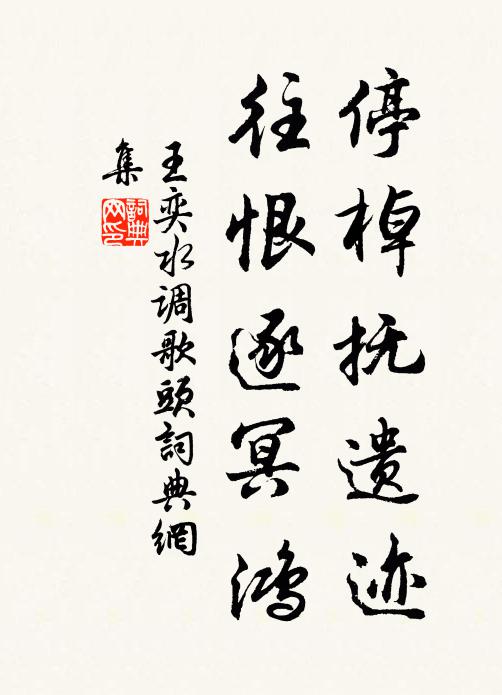 停棹抚遗迹
往恨逐冥鸿
王奕水调歌头詞典網
集
詞典网印